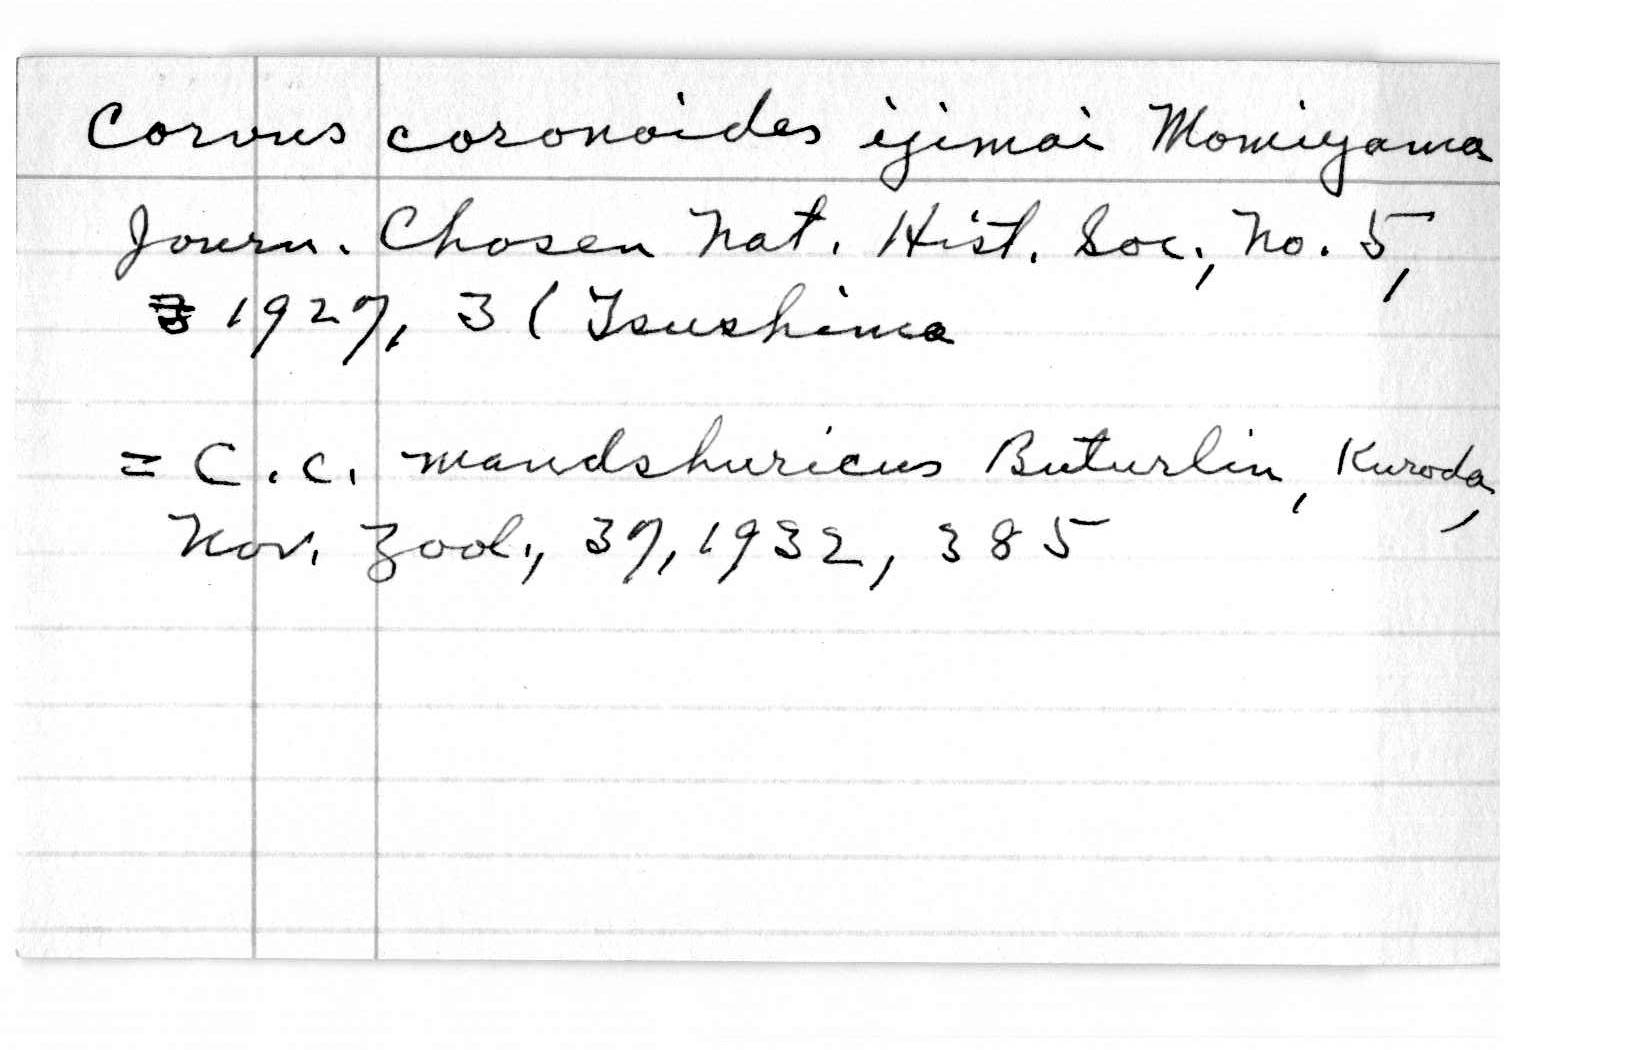 Corvus coronoides ijimai Momiyama
Journ. Chosen Nat. Hist. Soc., No. 5,
1927, 3 (Tsushima
= C. c. mandshuricus Buturlin, Kuroda,
Nov. Zool., 37, 1932, 385